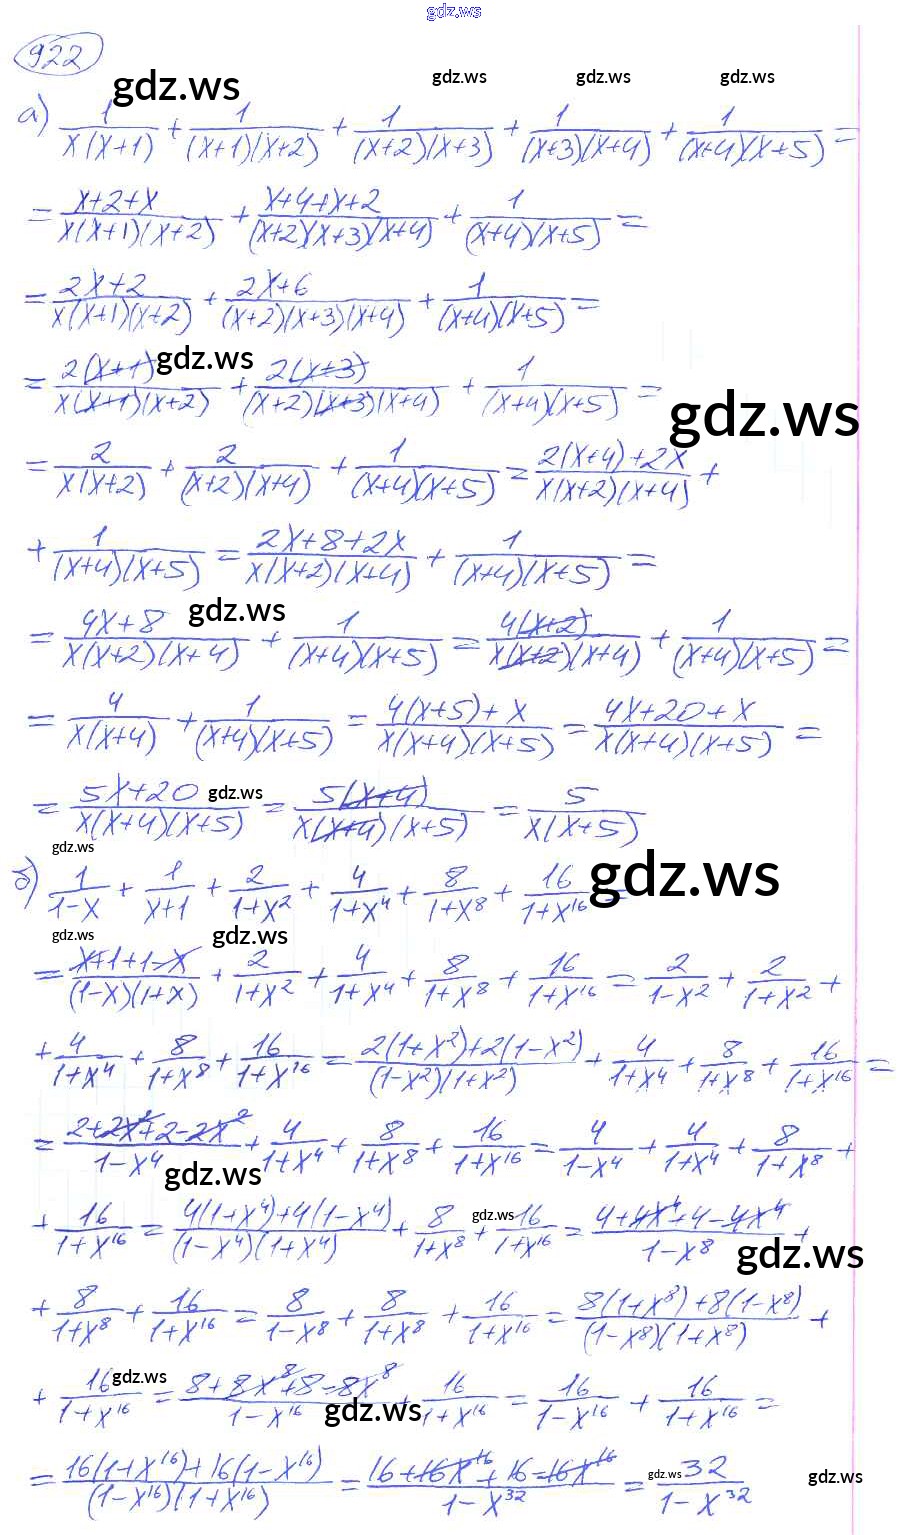 gdz.ws
922
gdz.ws gdz.ws gdz.ws gdz.ws
а) 1/(x(x+1)) + 1/((x+1)(x+2)) + 1/((x+2)(x+3)) + 1/((x+3)(x+4)) + 1/((x+4)(x+5)) =
= (x+2+x)/(x(x+1)(x+2)) + (x+4+x+2)/((x+2)(x+3)(x+4)) + 1/((x+4)(x+5)) =
= (2x+2)/(x(x+1)(x+2)) + (2x+6)/((x+2)(x+3)(x+4)) + 1/((x+4)(x+5)) =
gdz.ws
= 2(x+1)/(x(x+1)(x+2)) + 2(x+3)/((x+2)(x+3)(x+4)) + 1/((x+4)(x+5)) =
gdz.ws
= 2/(x(x+2)) + 2/((x+2)(x+4)) + 1/((x+4)(x+5)) = (2(x+4)+2x)/(x(x+2)(x+4)) +
+ 1/((x+4)(x+5)) = (2x+8+2x)/(x(x+2)(x+4)) + 1/((x+4)(x+5)) =
gdz.ws
= (4x+8)/(x(x+2)(x+4)) + 1/((x+4)(x+5)) = 4(x+2)/(x(x+2)(x+4)) + 1/((x+4)(x+5)) =
= 4/(x(x+4)) + 1/((x+4)(x+5)) = (4(x+5)+x)/(x(x+4)(x+5)) = (4x+20+x)/(x(x+4)(x+5)) =
= (5x+20)/(x(x+4)(x+5)) gdz.ws = 5(x+4)/(x(x+4)(x+5)) = 5/(x(x+5))
gdz.ws
б) 1/(1-x) + 1/(x+1) + 2/(1+x²) + 4/(1+x⁴) + 8/(1+x⁸) + 16/(1+x¹⁶) = gdz.ws
gdz.ws gdz.ws
= (x+1+1-x)/((1-x)(1+x)) + 2/(1+x²) + 4/(1+x⁴) + 8/(1+x⁸) + 16/(1+x¹⁶) = 2/(1-x²) + 2/(1+x²) +
+ 4/(1+x⁴) + 8/(1+x⁸) + 16/(1+x¹⁶) = (2(1+x²)+2(1-x²))/((1-x²)(1+x²)) + 4/(1+x⁴) + 8/(1+x⁸) + 16/(1+x¹⁶) =
= (2+2x²+2-2x²)/(1-x⁴) + 4/(1+x⁴) + 8/(1+x⁸) + 16/(1+x¹⁶) = 4/(1-x⁴) + 4/(1+x⁴) + 8/(1+x⁸) +
gdz.ws
+ 16/(1+x¹⁶) = (4(1+x⁴)+4(1-x⁴))/((1-x⁴)(1+x⁴)) + 8/(1+x⁸) + gdz.ws 16/(1+x¹⁶) = (4+4x⁴+4-4x⁴)/(1-x⁸) +
gdz.ws
+ 8/(1+x⁸) + 16/(1+x¹⁶) = 8/(1-x⁸) + 8/(1+x⁸) + 16/(1+x¹⁶) = (8(1+x⁸)+8(1-x⁸))/((1-x⁸)(1+x⁸)) +
+ 16/(1+x¹⁶) gdz.ws = (8+8x⁸+8-8x⁸)/(1-x¹⁶) + 16/(1+x¹⁶) = 16/(1-x¹⁶) + 16/(1+x¹⁶) =
gdz.ws
= (16(1+x¹⁶)+16(1-x¹⁶))/((1-x¹⁶)(1+x¹⁶)) = (16+16x¹⁶+16-16x¹⁶)/(1-x³²) = gdz.ws 32/(1-x³²) gdz.ws